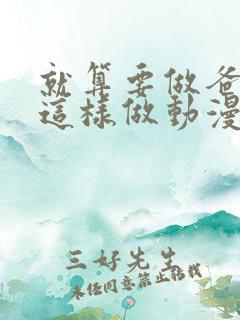 就算要做爸
這樣做動漫
三好先生
未经同意禁止转载